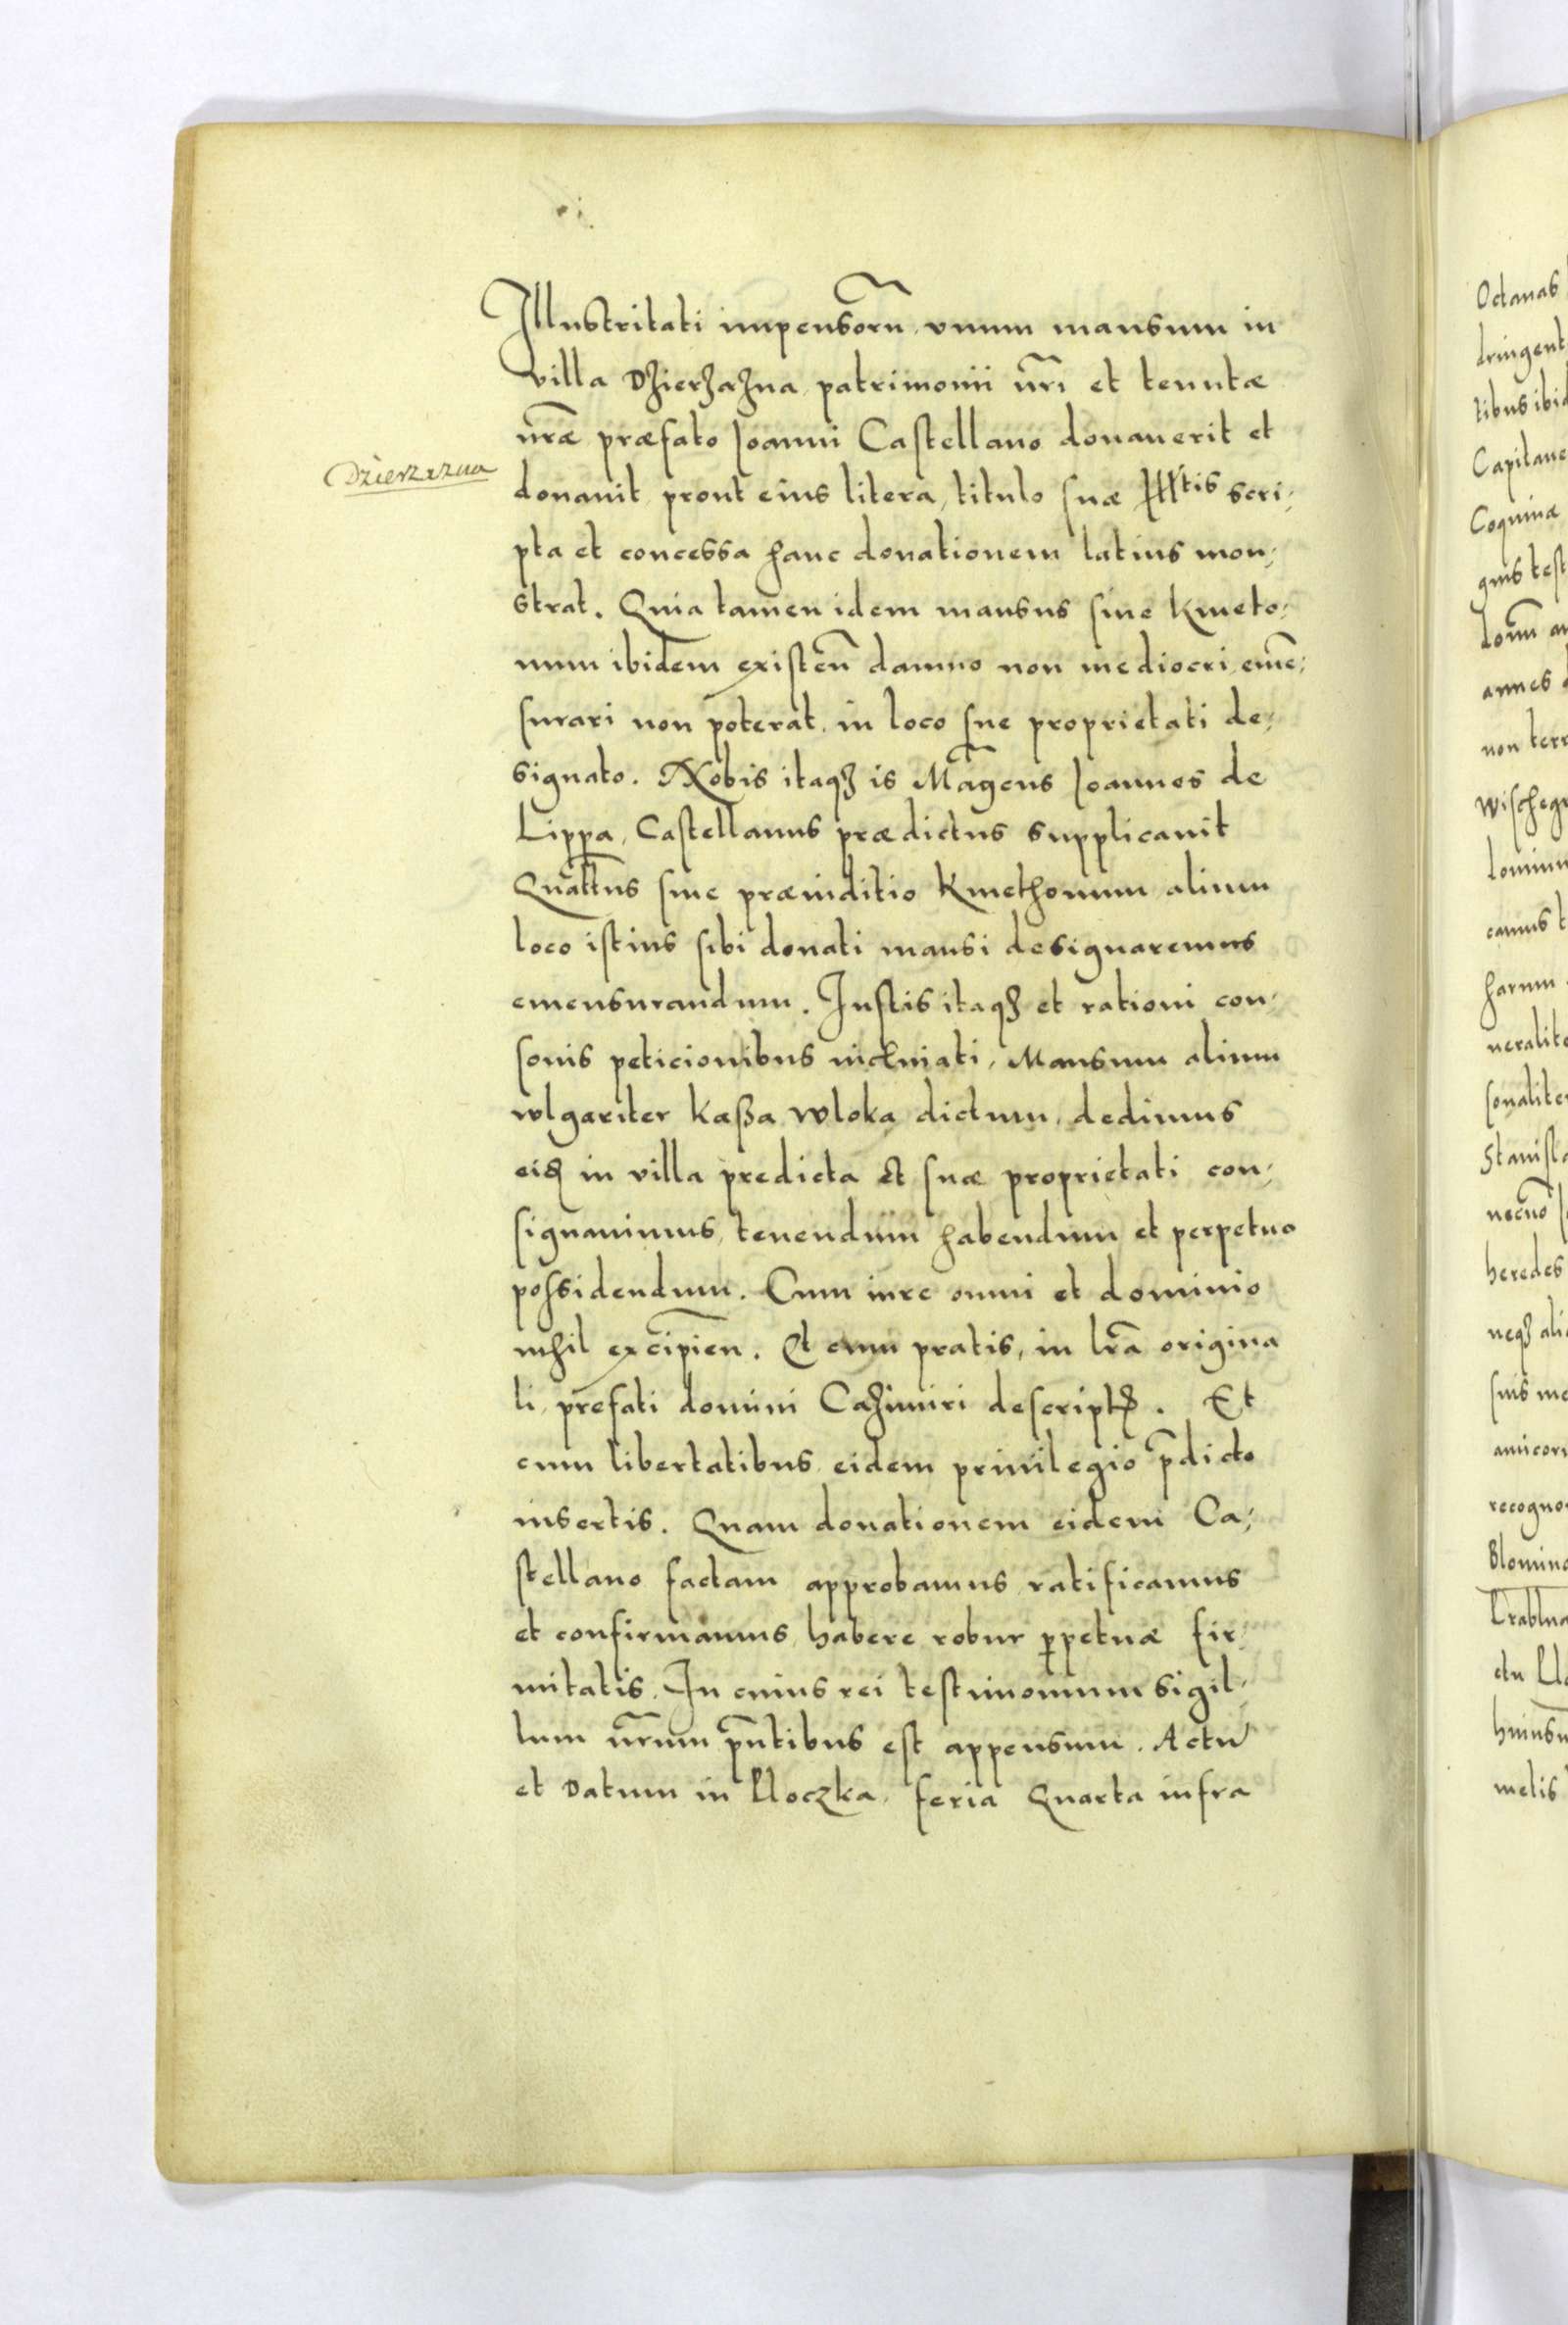 Illustritati impensoru͂ vnum mansum in
villa Dzierzazna patrimonii nr̃i et tenutæ
nr̃æ præfato Ioanni Castellano donauerit et
Dzierzazna
donauit prout eius litera, titulo suæ Illtis scri,
pta et concessa hanc donationem latius mon,
strat. Quia tamen idem mansus sine Kmeto,
num ibidem existeñ damno non mediocri emẽ,
surari non poterat in loco sue proprietati de,
signato. Nobis itaqꝫ is Mãgcus Ioannes de
Lippa, Castellanus prædictus supplicauit
Quat̃us sine præiuditio Kmethonum alium
loco istius sibi donati mansi designaremus
emensurandum. Iustis itaqꝫ et rationi con,
sonis peticionibus inclinati, Mansum alium
wlgariter kaßa wloka dictum, dedimus
eidꝫ in villa predicta et suæ proprietati con,
signauimus, tenendum habendum et perpetuo
possidendum. Cum iure omni et dominio
nihil excipieñ. Et cum pratis, in lr̃a origina
li, prefati domini Cazimiri descriptꝫ. Et
cum libertatibus eidem priuilegio p̃dicto
insertis. Quam donationem eidem Ca,
stellano factam approbamus ratificamus
et confirmamus, habere robur ꝑpetuæ fir,
mitatis. In cuius rei testimonium sigil,
lum nr̃um pñtibus est appensum. Actu͂
et Datum in Ploczka, feria Quarta infra
Octauas
dringent
tibus ibid
Capitane
Coquinæ
annes
non terr
lominu
harum
neralite
sonaliter
Stanisla
heredes
neqꝫ ali
suis me
amicoru
recogno
melis